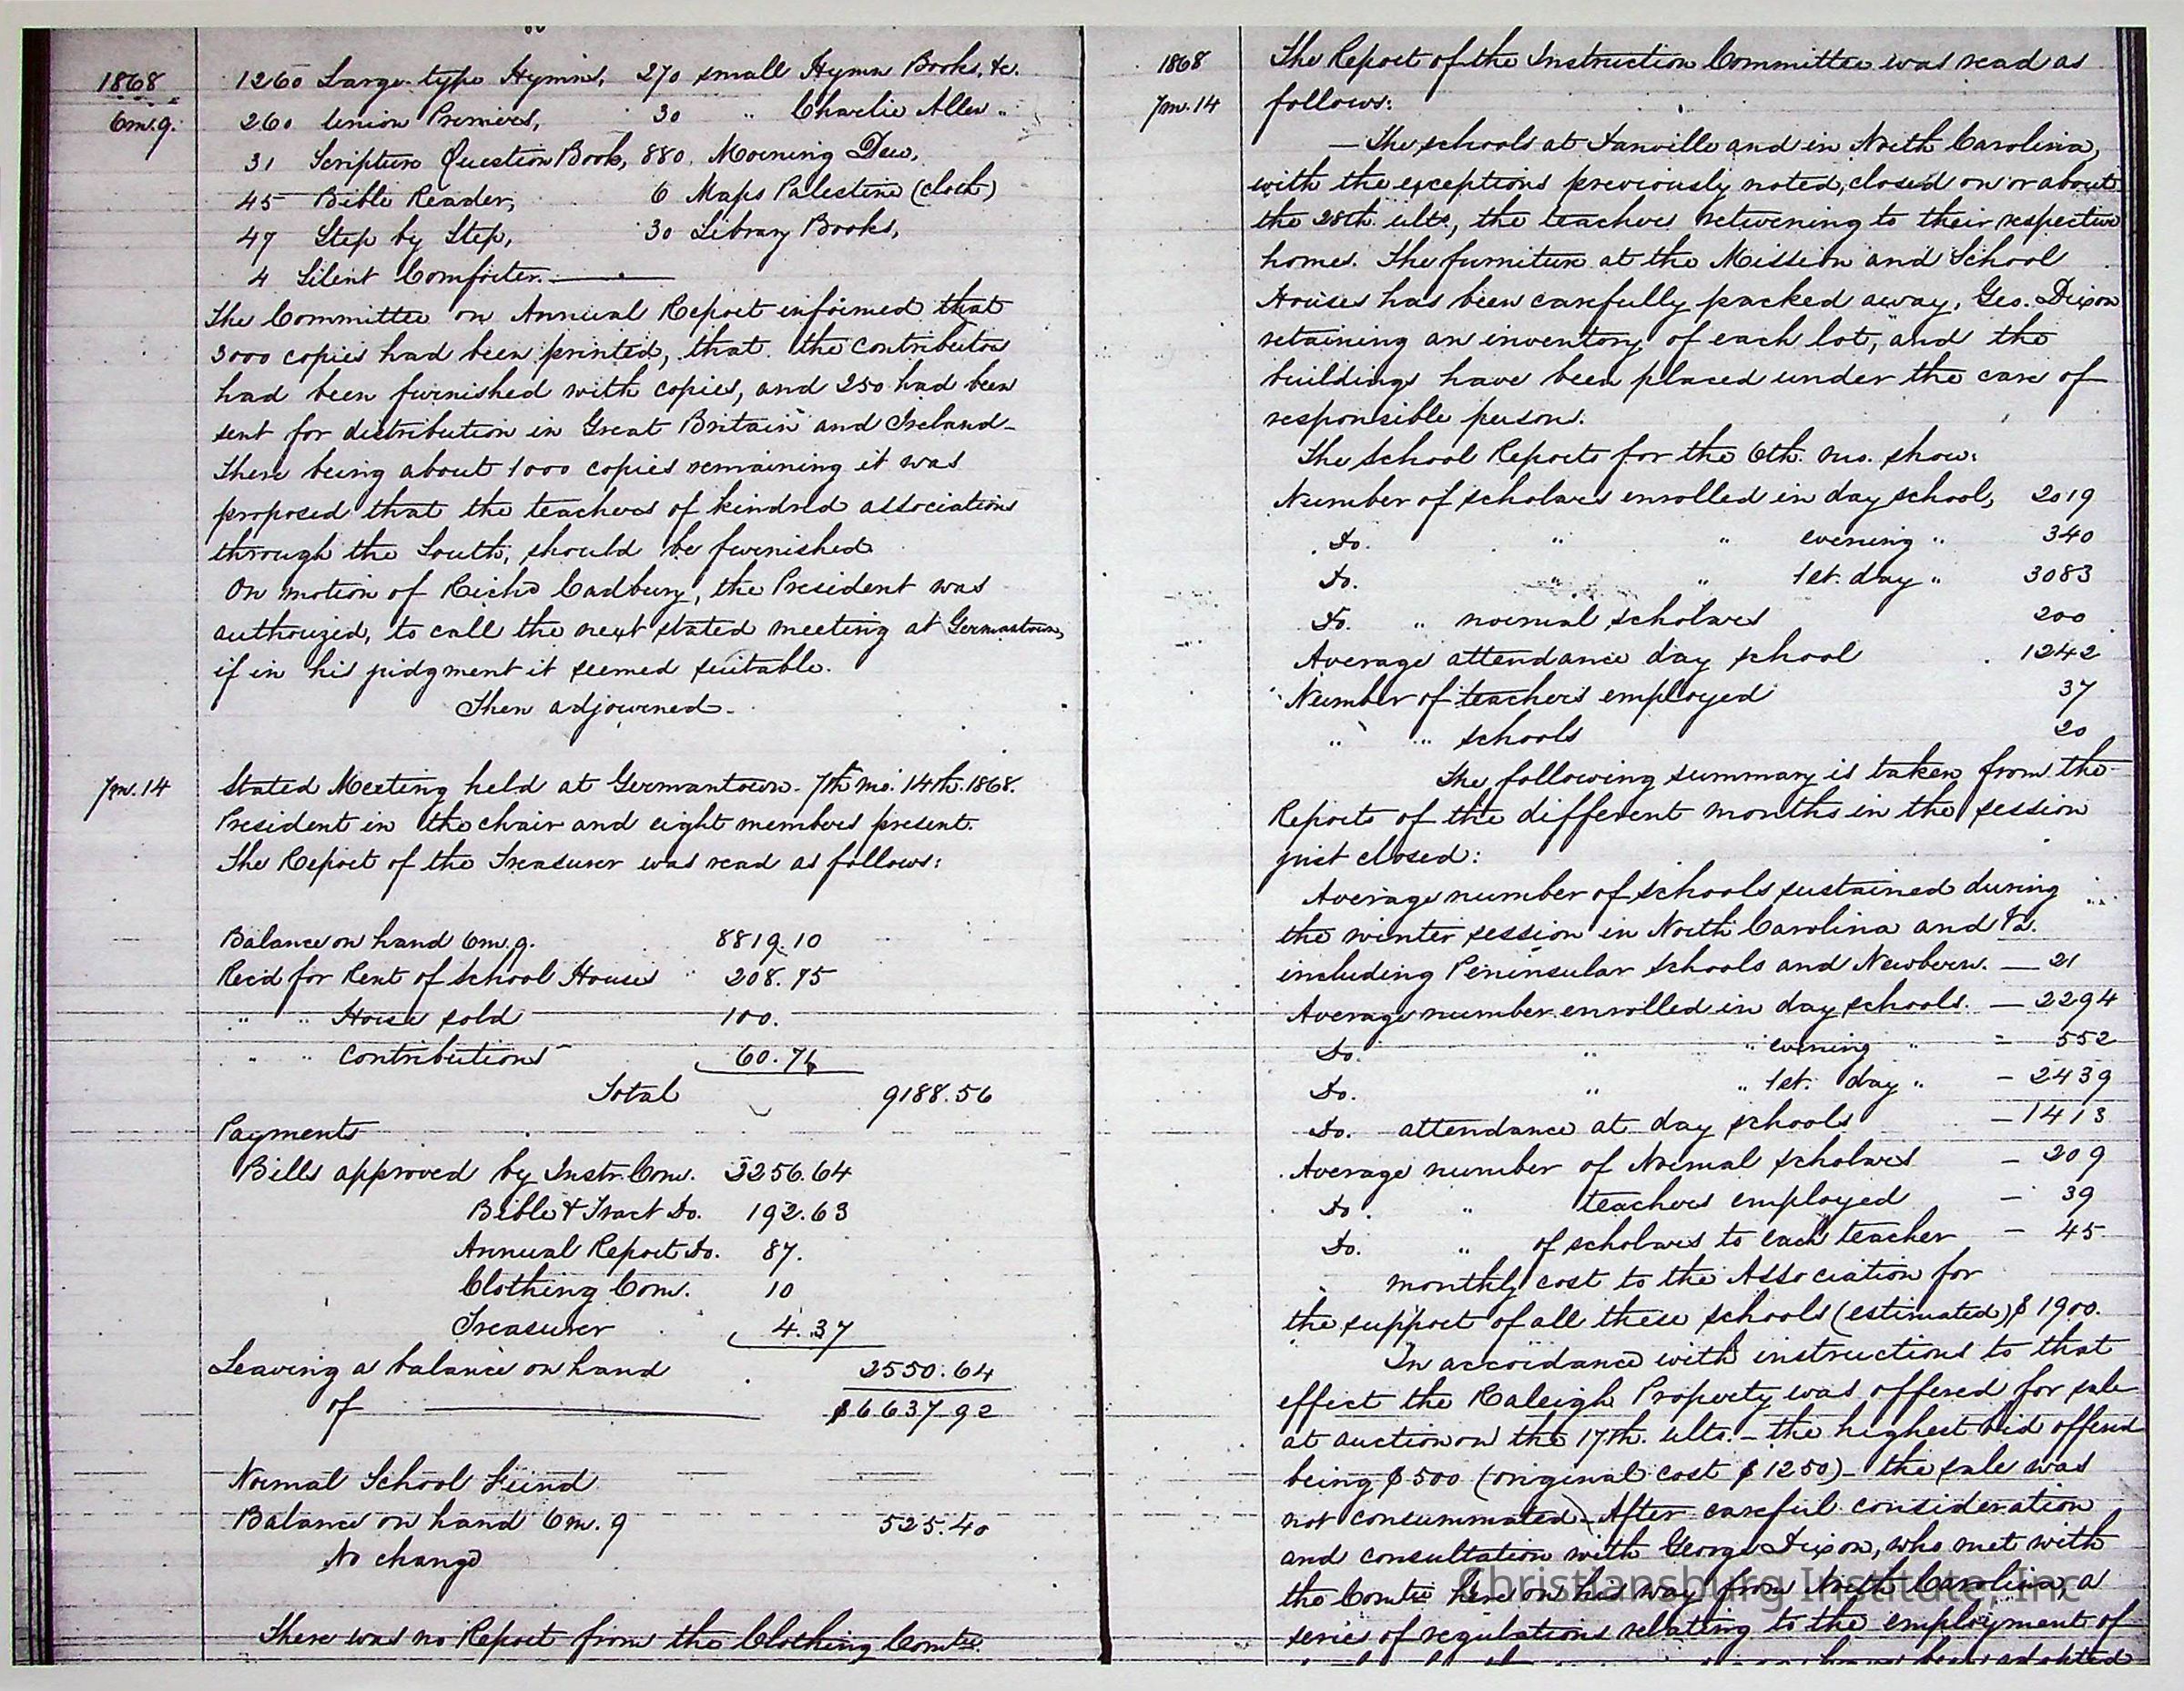 1868 1260 Large type Hymns, 270 small Hymn Books, &c.
6m.9. 260 Union Primers, 30 " Charlie Allen "
31 Scripture Question Book, 880. Morning Dew,
45 Bible Reader, 6 Maps Palestine (cloth)
47 Step by Step, 30 Library Books,
4 Silent Comforter.
The Committee on Annual Report informed that
3000 copies had been printed, that the contributors
had been furnished with copies, and 250 had been
sent for distribution in Great Britain and Ireland-
There being about 1000 copies remaining it was
proposed that the teachers of kindred associations
through the South, should be furnished
On motion of Richd Cadbury, the President was
authorized, to call the next stated meeting at Germantown,
if in his judgment it seemed suitable.
Then adjourned-
7m.14 Stated Meeting held at Germantown. 7th mo. 14th. 1868.
President in the chair and eight members present.
The Report of the Treasurer was read as follows:
Balance on hand 6m.9. 8819.10
Recd for Rent of School House " 208.75
" " Horse sold 100.
" " contributions 60.71
Total 9188.56
Payments
Bills approved by Instr. Com. 2256.64
Bible & Tract Do. 192.63
Annual Report Do. 87.
Clothing Com. 10
Treasurer 4.37
Leaving a balance on hand 2550.64
of $6637.92
Normal School Fund
Balance on hand 6m.9 525.40
No change
There was no Report from the Clothing Comtee.
1868 The Report of the Instruction Committee was read as
7m.14 follows:
— The schools at Danville and in North Carolina,
with the exceptions previously noted, closed on or about
the 28th. ulto, the teachers returning to their respective
homes. The furniture at the Mission and School
Houses has been carefully packed away, Geo. Dixon
retaining an inventory of each lot, and the
buildings have been placed under the care of
responsible persons.
The School Reports for the 6th. mo. show:
Number of scholars enrolled in day school, 2019
Do. " " evening " 340
Do. " " 1st. day " 3083
Do. " normal scholars 200
Average attendance day school 1242
Number of teachers employed 37
" " schools 20
The following summary is taken from the
Reports of the different months in the session
just closed:
Average number of schools sustained during
the winter session in North Carolina and Va.
including Peninsular schools and Newbern. — 21
Average number enrolled in day schools. — 2294
Do. " " evening " - 552
Do. " " 1st. day " - 2439
Do. attendance at day schools - 1413
Average number of Normal scholars - 209
Do. " teachers employed - 39
Do. " of scholars to each teacher - 45
" monthly cost to the Association for
the support of all these schools (estimated) $1900.
In accordance with instructions to that
effect the Raleigh Property was offered for sale
at auction on the 17th. ulto. - the highest bid offered
being $500 (original cost $1250)- the sale was
not consummated - After careful consideration
and consultation with George Dixon, who met with
the Comtee here on his way from North Carolina, a
series of regulations relating to the employment of
have been adopted
Christiansburg Institute, Inc